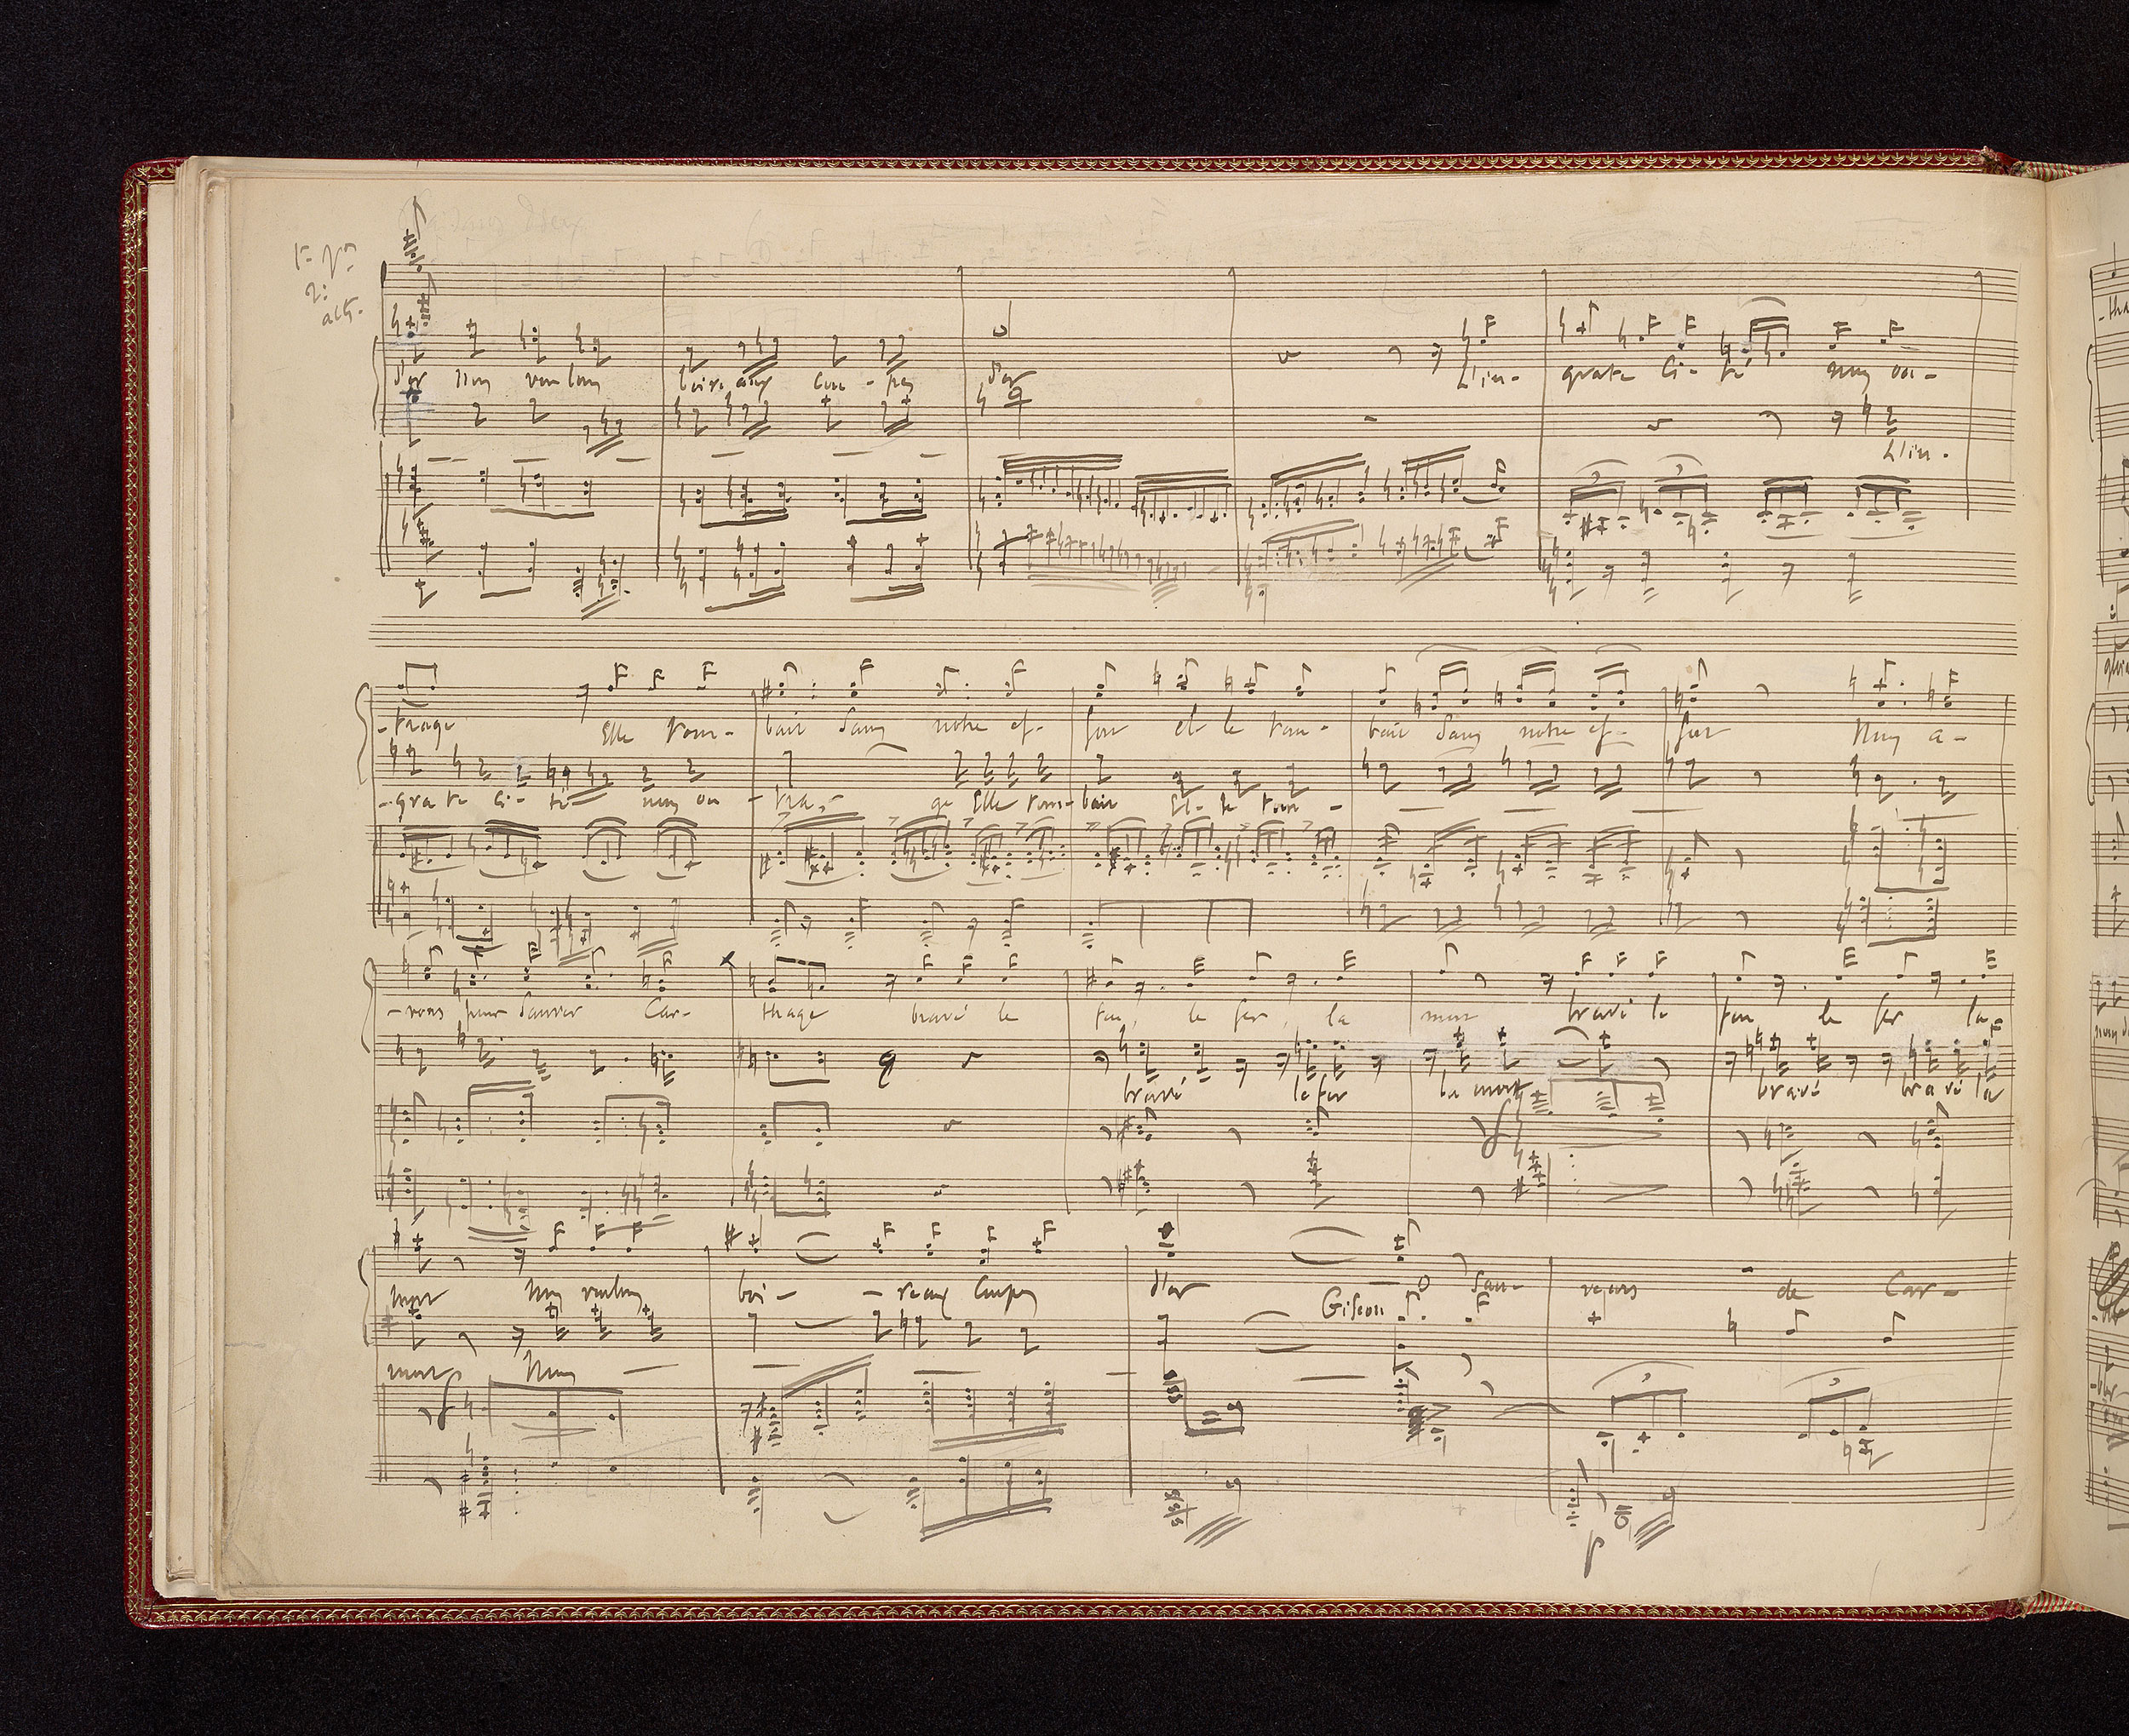 d'or nous voulons boire aux cou - pes d'or L'in - grate Ci - té nous ou -
L'in -
- trage Elle tom - bait sans notre ef - fort et le tom - bait sans notre ef - fort Nous a -
- gra te ci - té nous ou - tra - ge Elle tom - bait El - le tom -
- vons pour sauver Car - thage bravé le feu, le fer, la mort bravé le feu le fer la
bravé le fer la mort bravé bravé la
mort Nous voulons boi - - re aux Coupes d'or
Giscon O Sau - veurs de Car -
mort Nous